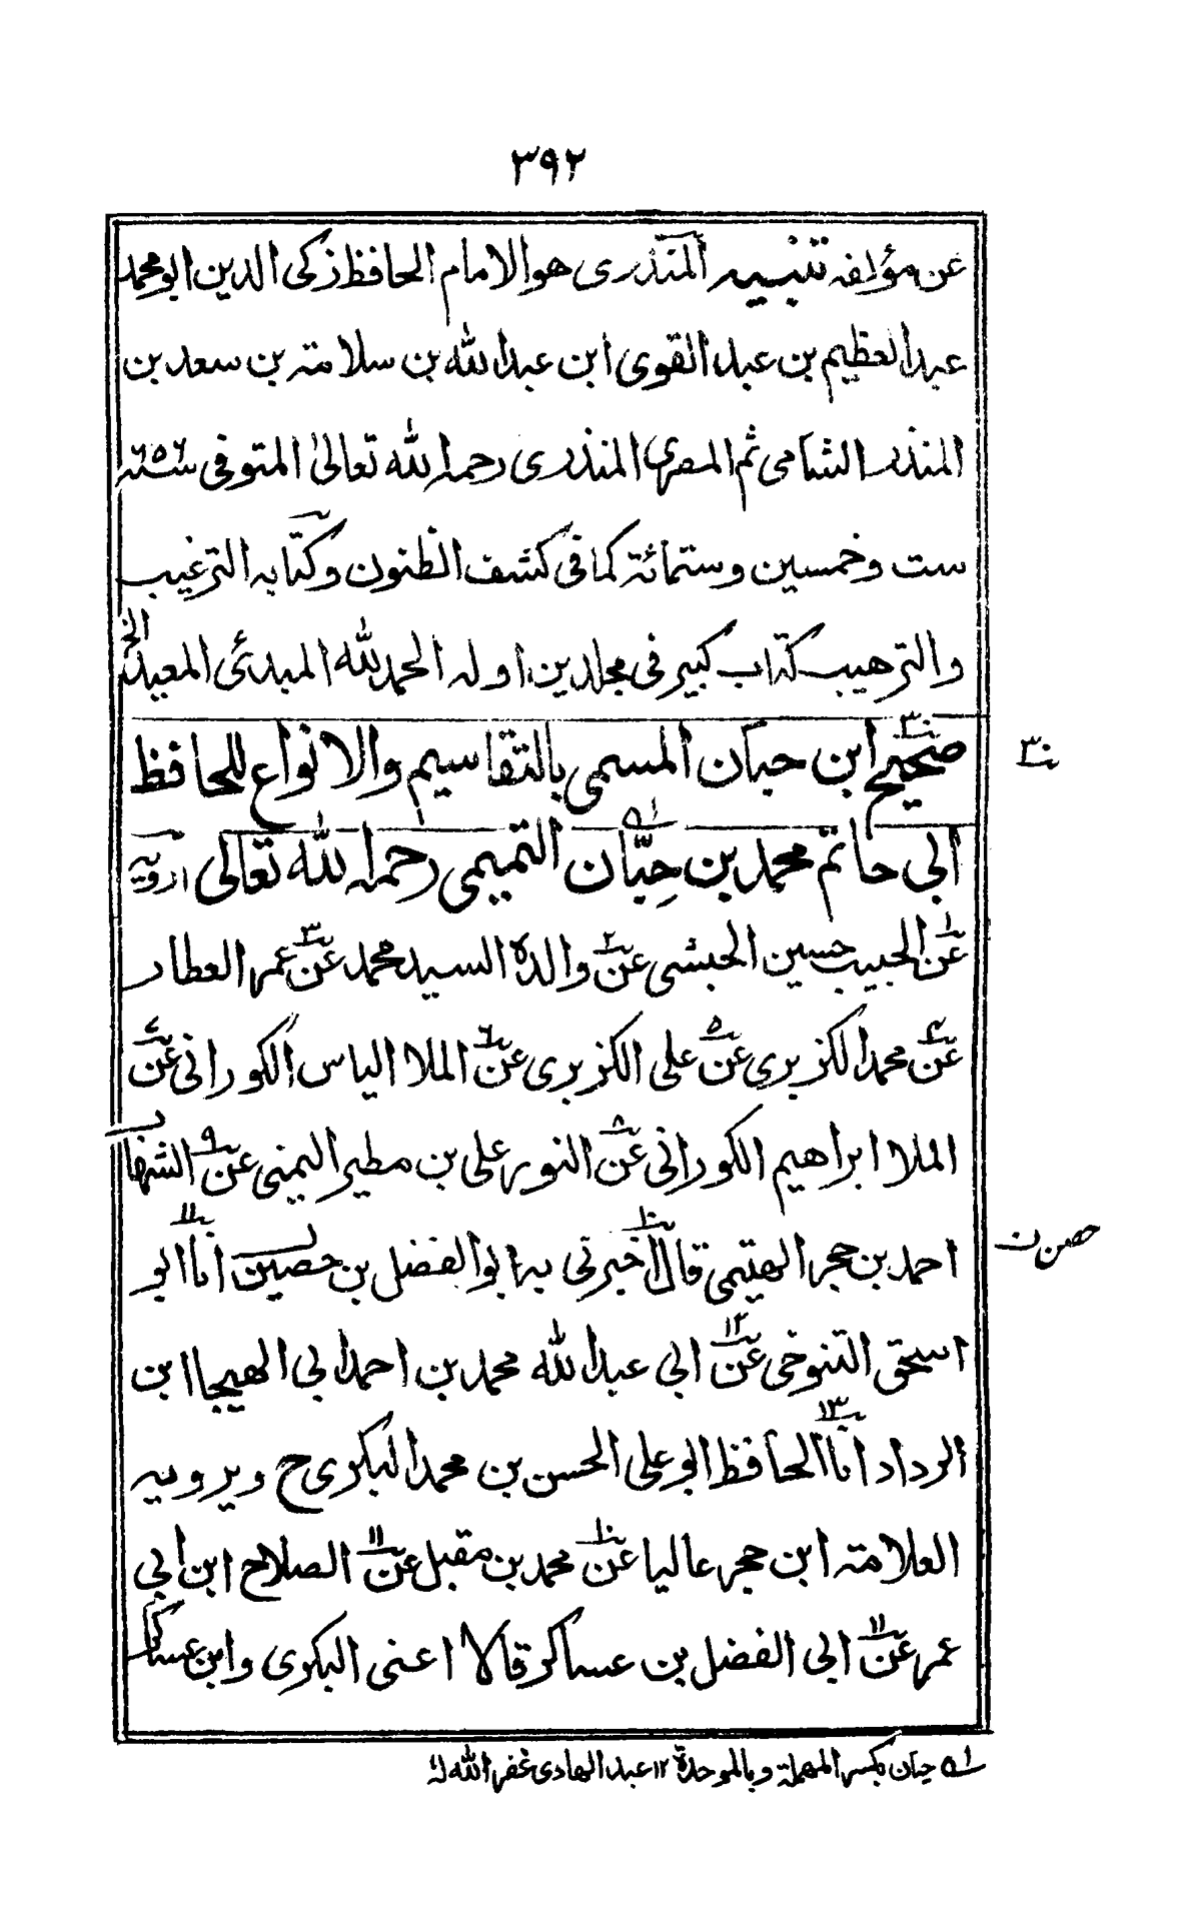 ٣٩٢
عن مؤلفه تنبيه المنذرى هو الامام الحافظ زكى الدين ابو محمد
عبد العظيم بن عبد القوى ابن عبد الله بن سلامة بن سعد بن
المنذر الشامى ثم المصرى المنذرى رحمه الله تعالىٰ المتوفى سنة ٦٥٦
ست وخمسين وستمائة كما فى كشف الظنون وكتابه الترغيب
والترهيب كتاب كبير فى مجلدين اوله الحمد لله المبدئ المعيد الخ
صحيح ابن حبان المسمى بالتقاسيم والانواع للحافظ
٣٠
ابي حاتم محمد بن حِبَّان التميمى رحمه الله تعالى ارويه
عن الحبيب حسين الحبشى عن ٢ والده السيد محمد عن ٣ عمر العطار
عن ٤ محمد الكزبرى عن ٥ على الكزبرى عن ٦ الملا الياس الكورانى عن ٧
الملا ابراهيم الكورانى عن ٨ النور على بن مطير اليمنى عن ٩ الشهاب
احمد بن حجر الهيتمى قال ١٠ اخبرنى به ابو الفضل بن حصين انا ١١ ابو
حصن ن
اسحق التنوخى عن ١٢ ابي عبد الله محمد بن احمد ابي الهيجا ابن
الرداد انا ١٣ الحافظ ابو على الحسن بن محمد البكرى ح ويرويه
العلامة ابن حجر عاليا عن ١٠ محمد بن مقبل عن ١١ الصلاح ابن ابي
عمر عن ١١ ابي الفضل بن عساكر قالا اعنى البكرى وابن عساكر
حبان بكسر المهملة وبالموحدة ١٢ عبد الهادى غفر الله له